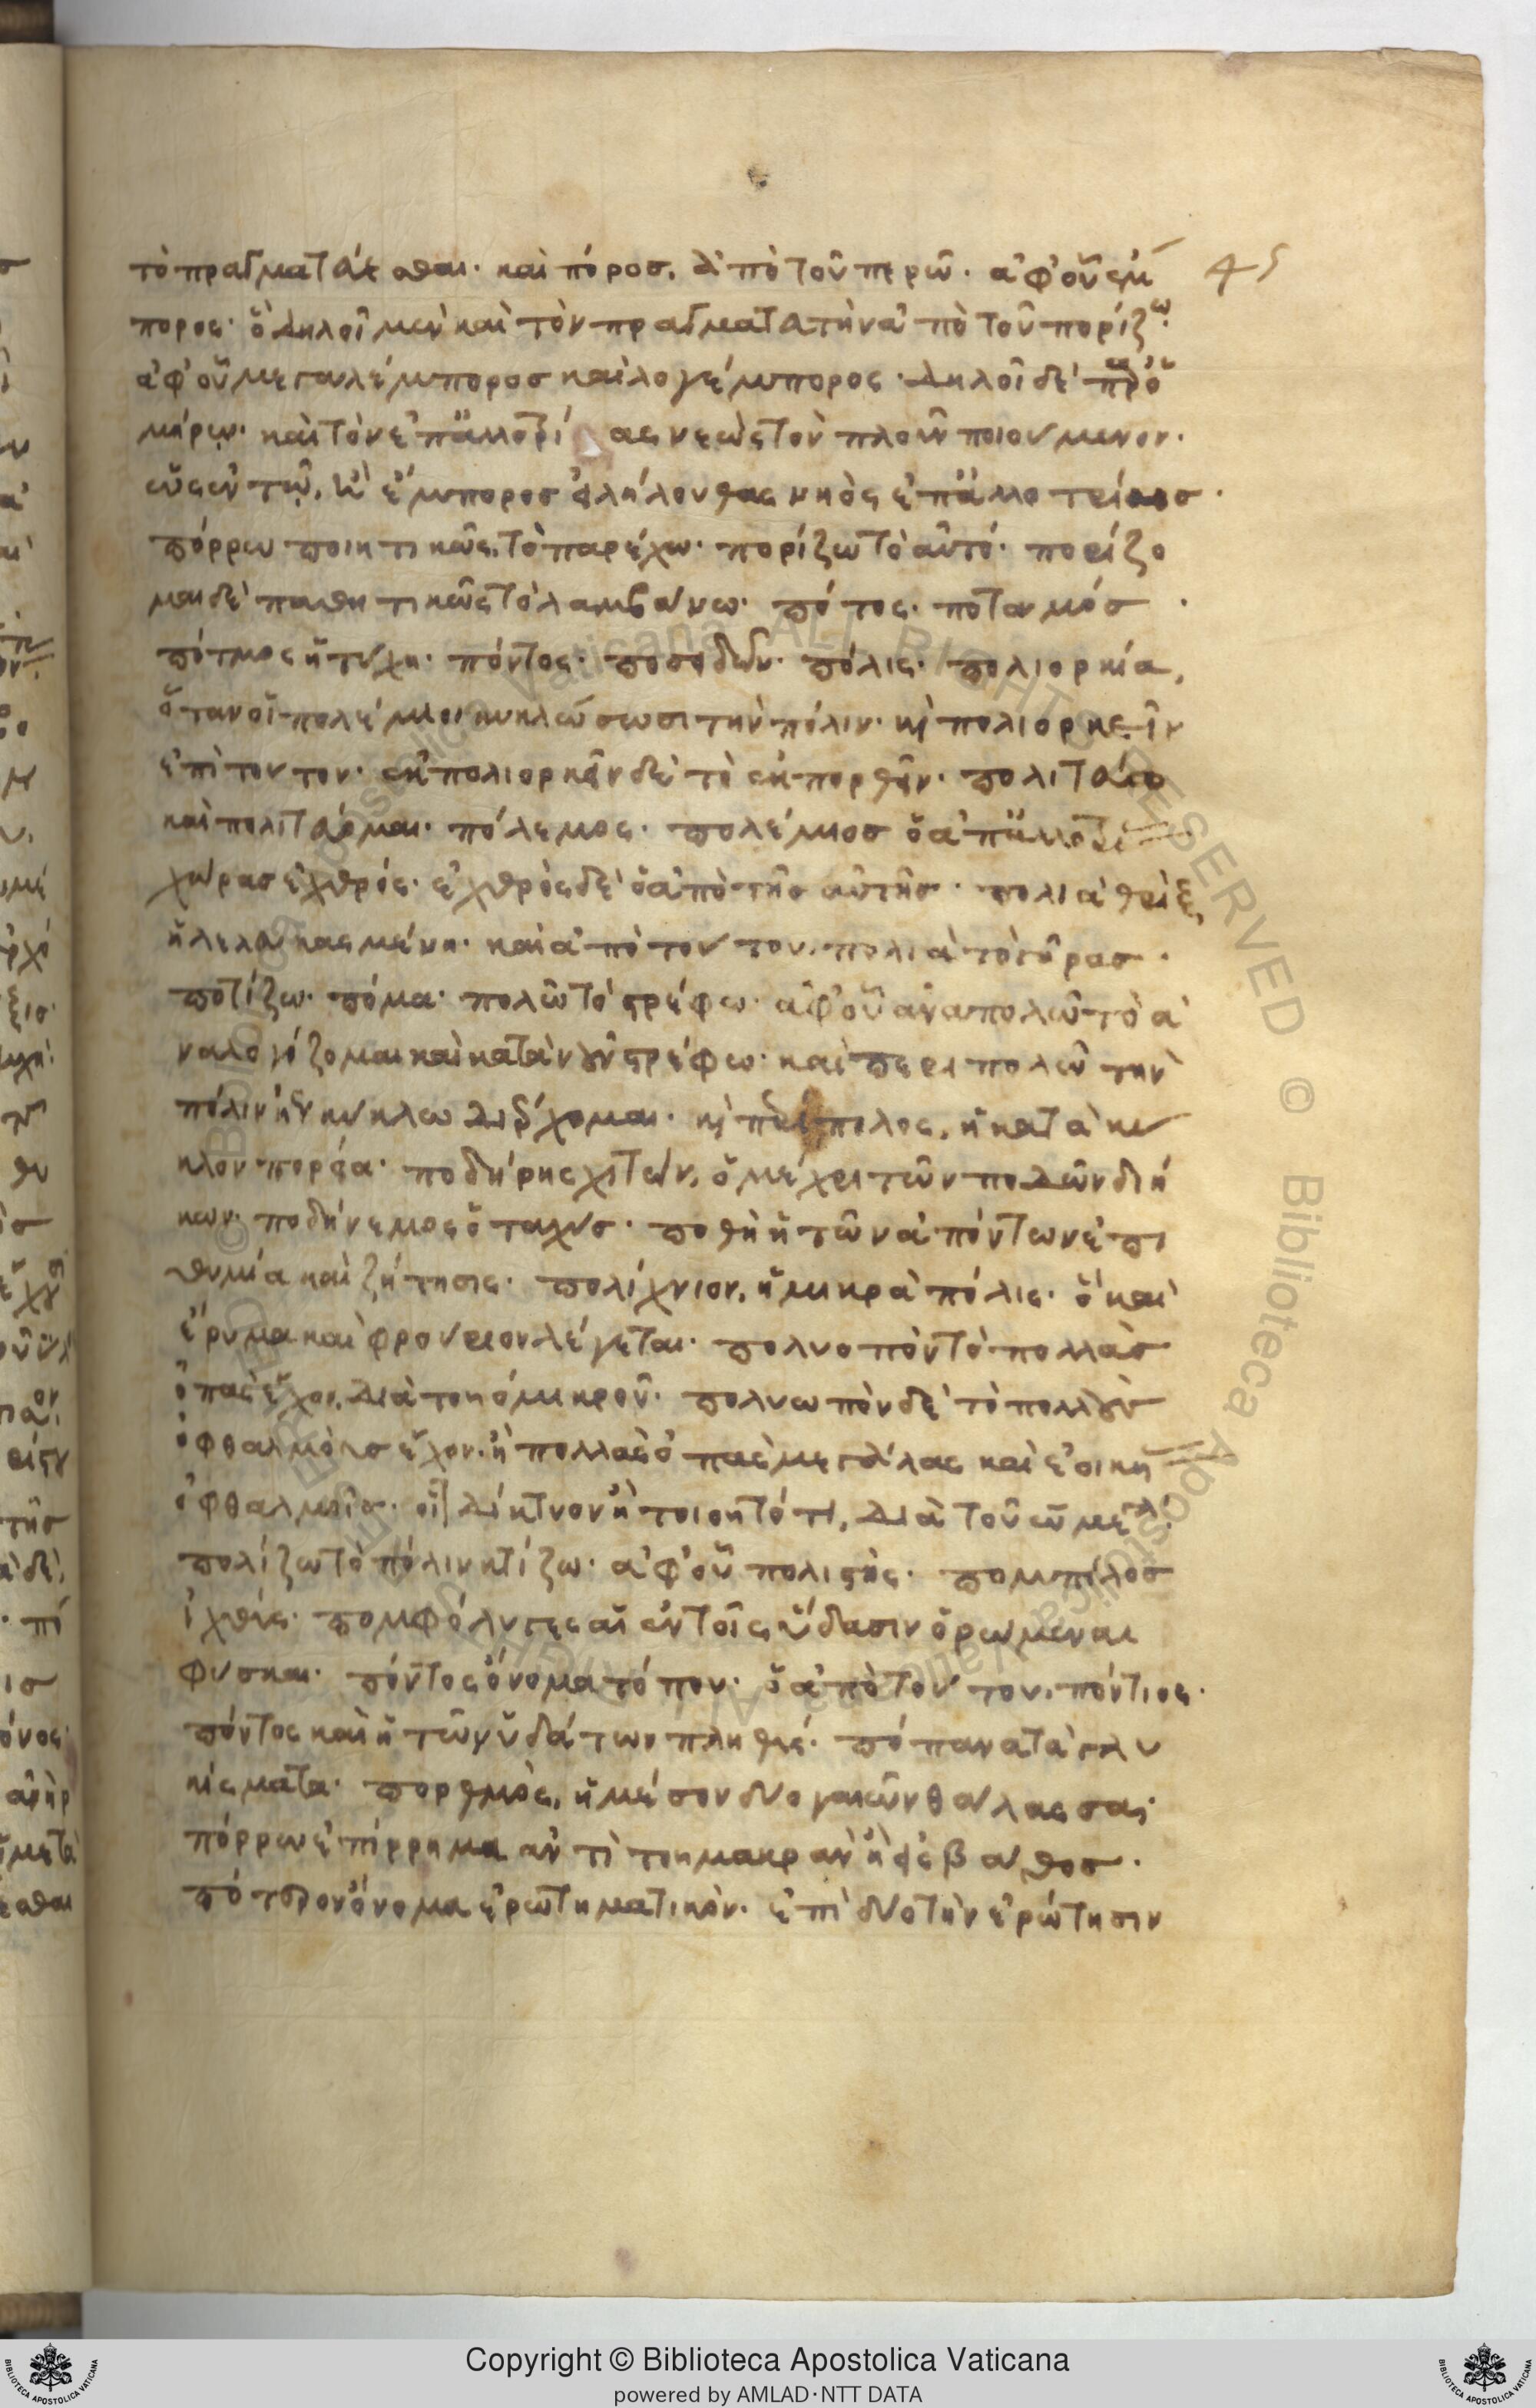 45
τὸ πραγματεύεσθαι· καὶ πόρος, ἀπὸ τοῦ περῶ· ἀφ' οὗ ἔμ
πορος· ὃ δηλοῖ μὲν καὶ τὸν πραγματευτὴν ἀπὸ τοῦ πορίζω·
ἀφ' οὗ μεγαλέμπορος καὶ λογέμπορος· δηλοῖ δὲ παρ' ὁ
μήρῳ· καὶ τὸν ἐπ' ἀλλοτρίας νεὼς τὸν πλοῦν ποιούμενον·
ἔμπορος εἰλήλουθας νηὸς ἐπ' ἀλλοτρίας·
πόρρω ποιητικῶς, τὸ παρέχω· πορίζω τὸ αὐτό· πορίζο
μαι δὲ παθητικῶς τὸ λαμβάνω· πότος· ποταμός·
πότμος ἡ τύχη· πόντος· ποσειδῶν· πόλις· πολιορκία,
ὅταν οἱ πολέμιοι κυκλώσωσι τὴν πόλιν· καὶ πολιορκεῖν
ἐπὶ τούτου· ἐκπολιορκεῖν δὲ τὸ ἐκπορθεῖν· πολιτεύω
καὶ πολιτεύομαι· πόλεμος· πολέμιος ὁ ἀπ' ἀλλοτρίας
χώρας ἐχθρός· ἐχθρὸς δὲ ὁ ἀπὸ τῆς αὐτῆς· πολιὰ θρὶξ,
ἡ λελευκασμένη· καὶ ἀπὸ τούτου, πολιὰ τὸ γῆρας·
ποτίζω· πόμα· πολῶ τὸ στρέφω· ἀφ' οὗ ἀναπολῶ τὸ ἀ
ναλογίζομαι καὶ κατὰ νοῦν στρέφω· καὶ περιπολῶ τὴν
πόλιν ἤγουν κύκλω διέρχομαι· καὶ περίπολος, ἡ κατὰ κύ
κλον πορεία· ποδήρης χιτών, ὁ μέχρι τῶν ποδῶν διή
κων· ποδήνεμος ὁ ταχύς· ποθὴ ἡ τῶν ἀπόντων ἐπι
θυμία καὶ ζήτησις· πολίχνιον, ἡ μικρὰ πόλις· ὃ καὶ
ἔρυμα καὶ φρούριον λέγεται· πολυοπὸν τὸ πολλὰς
ὀπὰς ἔχον, διὰ τοῦ ὀμικροῦ· πολυωπὸν δὲ τὸ πολλοὺς
ὀφθαλμοὺς ἔχον· ἢ πολλὰς ὀπὰς μεγάλας καὶ ἐοικυίας
ὀφθαλμοῖς· οἷον δίκτυον ἢ τοιοῦτό τι, διὰ τοῦ ω μεγάλου·
πολίζω τὸ πόλιν κτίζω· ἀφ' οὗ πολιστής· πομπίλος
ἰχθύς· πομφόλυγες αἱ ἐν τοῖς ὕδασιν ὁρώμεναι
φύσκαι· πόντος ὄνομα τόπου· ὁ ἀπὸ τούτου, πόντιος·
πόντος καὶ ἡ τῶν ὑδάτων πληθύς· πόπανα τὰ γλυ
κίσματα· πορθμὸς, ἡ μέσον δύο γαιῶν θάλασσα·
πόρρω ἐπίρρημα ἀντὶ τοῦ μακρὰν ἢ εἰς βάθος·
πότερον ὄνομα ἐρωτηματικὸν· ἐπὶ δύο τὴν ἐρώτησιν
Copyright © Biblioteca Apostolica Vaticana
powered by AMLAD·NTT DATA